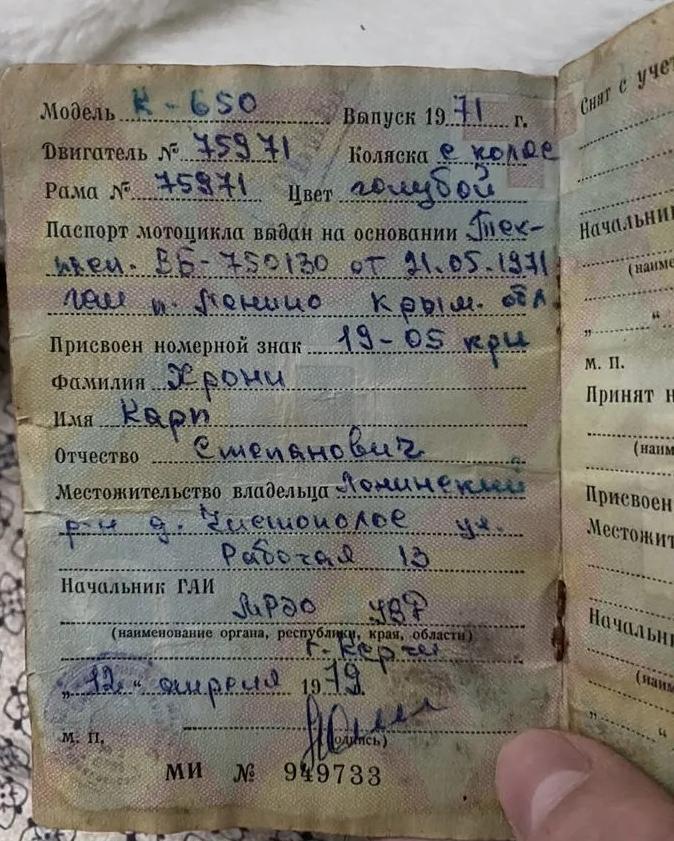 Модель К-650 Выпуск 1971 г.
Двигатель № 75971 Коляска с коляс
Рама № 75971 Цвет голубой
Паспорт мотоцикла выдан на основании Тех-
ВБ-750130 от 21.05.1971
гаи п. Ленино Крым. обл.
Присвоен номерной знак 19-05 кри
Фамилия Хрони
Имя Карп
Отчество Степанович
Местожительство владельца Ленинский
р-н д. Чистополое ул.
Рабочая 13
Начальник ГАИ
МРЭО УВД
(наименование органа, республики, края, области)
г. Керчи
„12“ апреля 1979.
(подпись)
м. п.
МИ № 949733
Снят с учет
Начальник
(наиме
„ “
м. п.
Принят н
(наим
Присвоен
Местожит
Начальни
(наим
„ “